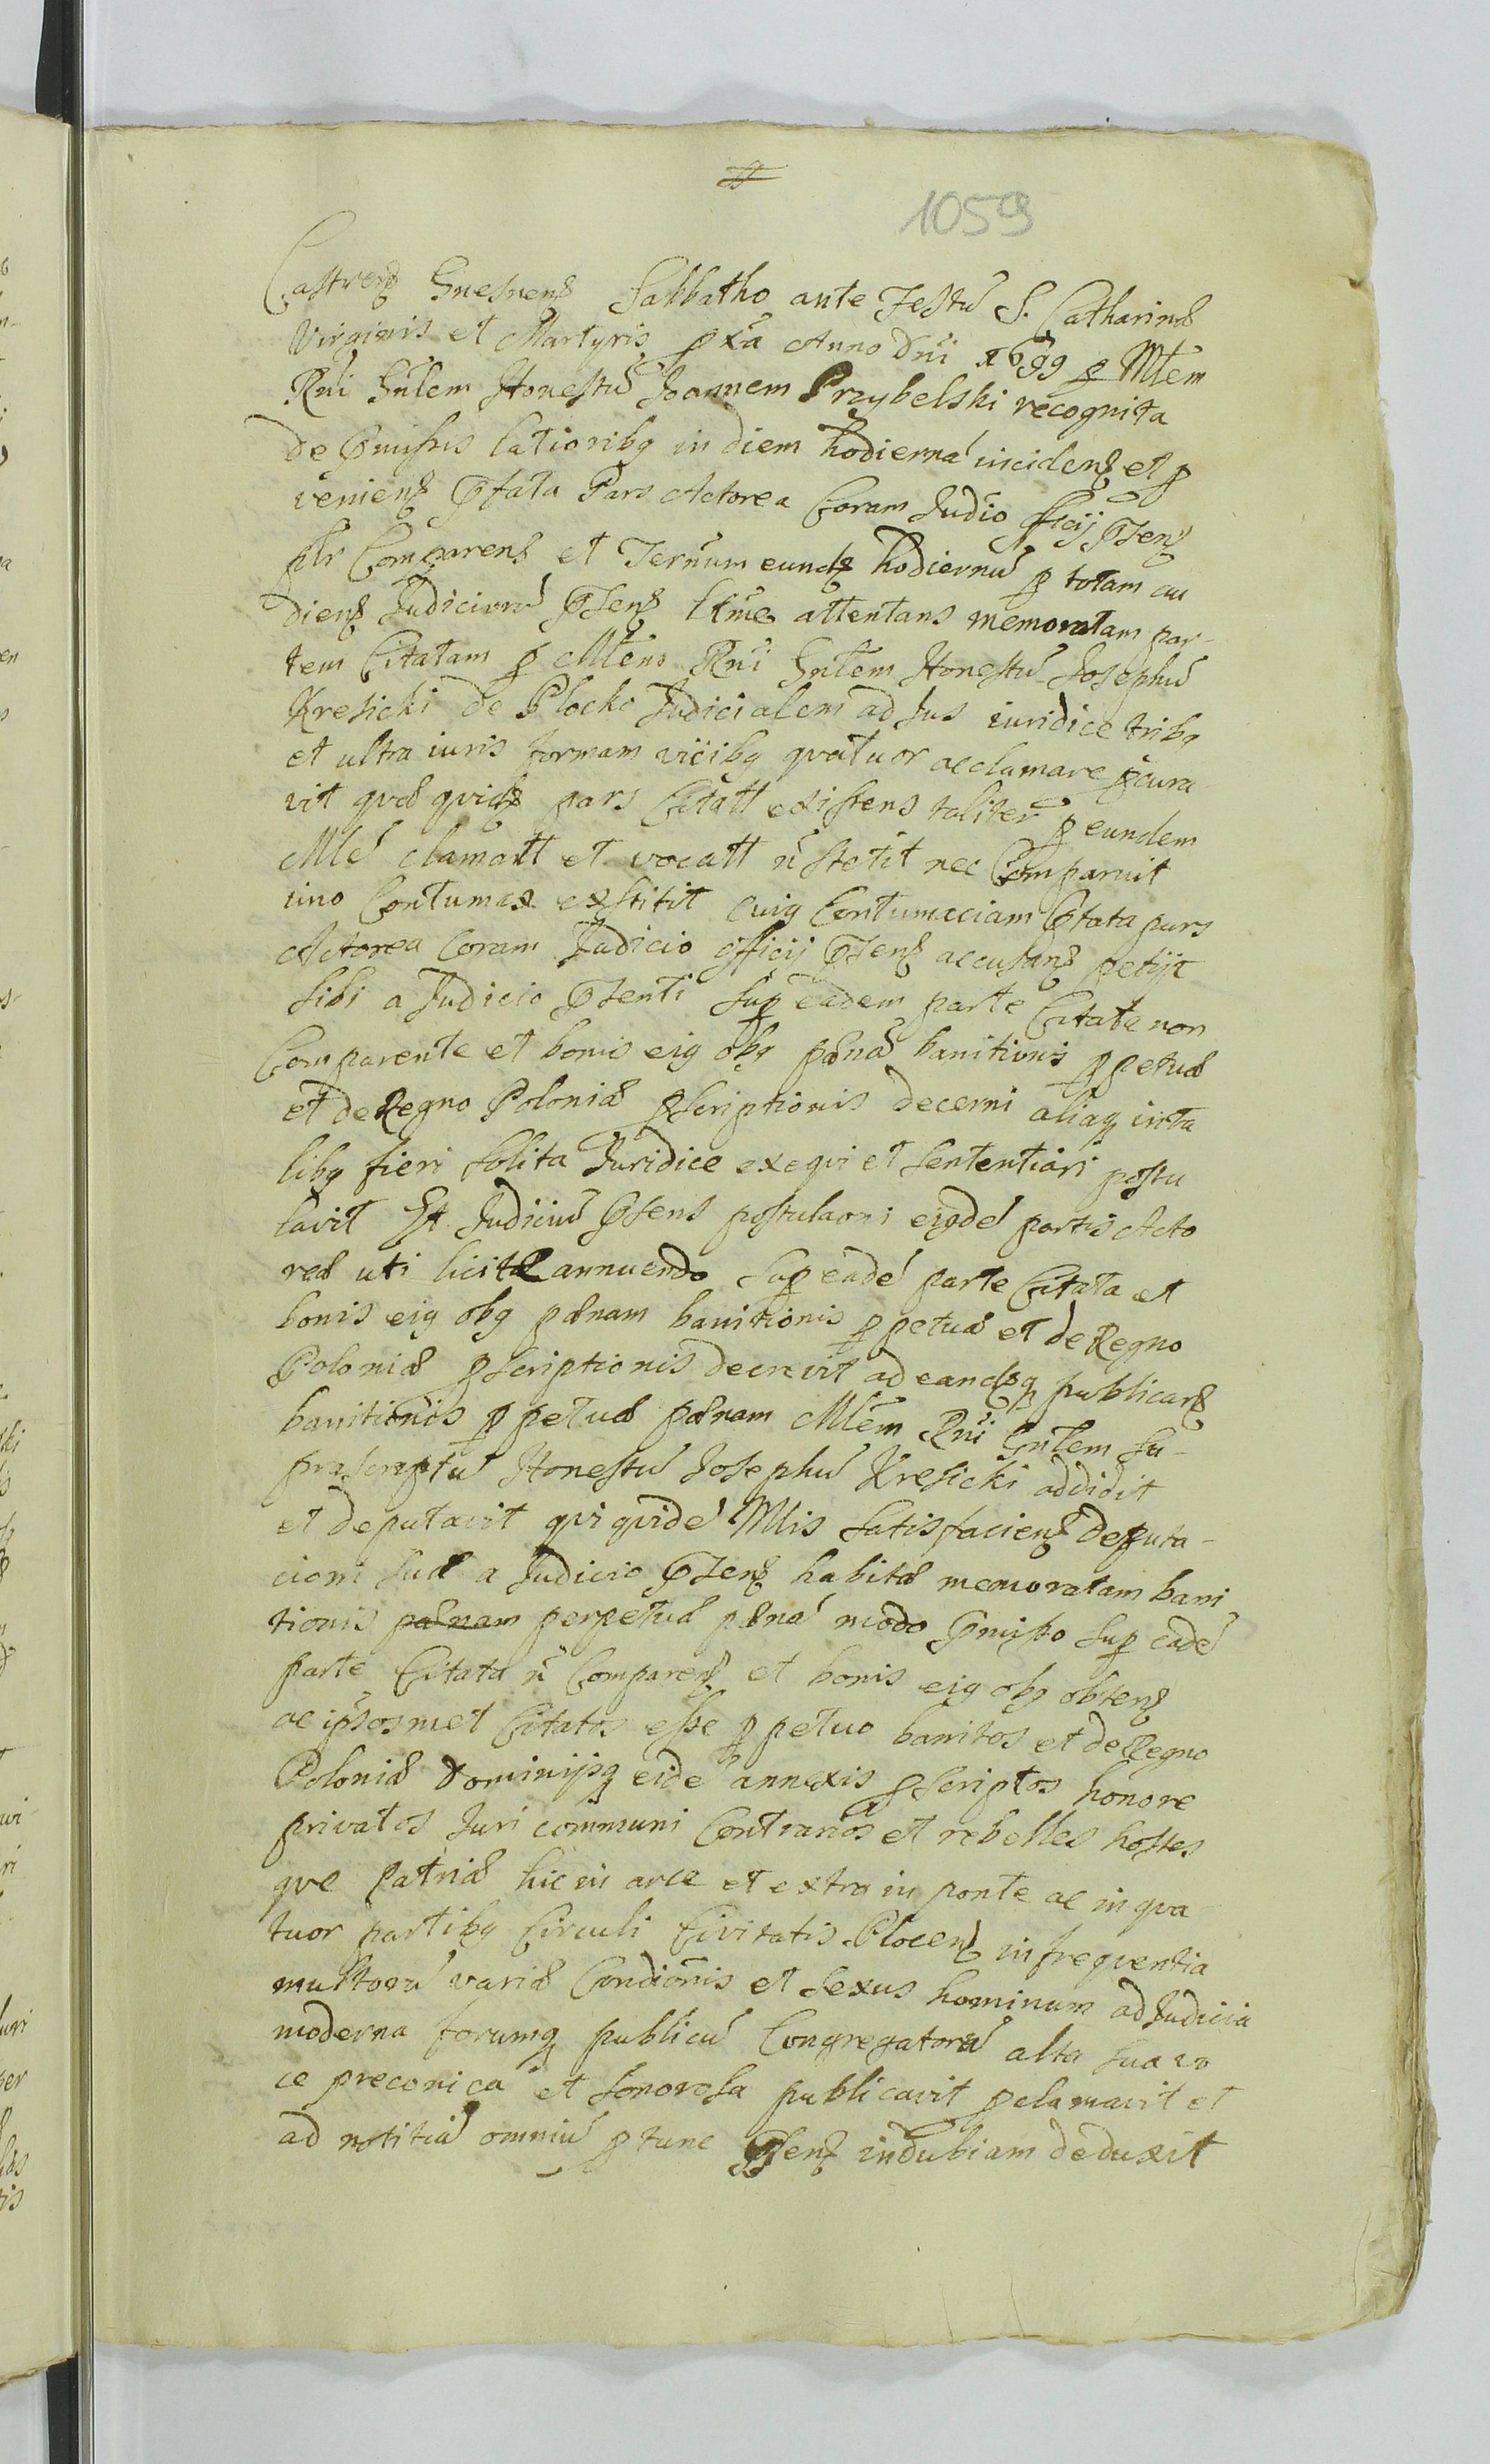 1059
Castreñ Gnesneñ Sabbatho ante Festũ S. Catharinæ
Virginis et Martyris pxa Anno Dni 1699 p Mlem
Rni Gnlem Honestũ Joannem Przybelski recognita
de pmissis latioribq in diem hodiernã incideñ et p
venieñ pfata Pars Actorea Coram Judio officij pseñ
plr Compareñ et Ternum eundẽ hodiernũ p totam au
dieñ Judiciorũ pseñ ltme attentans memoratam par-
tem Citatam p Mlem Rni Gnlem Honestũ Josephũ
Kresicki de Plocko Judicialem ad Jus iuridice tribq
et ultra iuris formam vicibq quatuor acclamare pcura
vit quæ quidẽ pars Citatt existens taliter p eundem
Mlẽ clamatt et vocatt ñ stetit nec Comparuit
imo Contumax exstitit cuiq Contumaciam pfata pars
Actorea coram Judicio officij pseñ accusañ petijt
sibi a Judicio psenti sup eadem parte Citata non
Comparente et bonis eiq obq pænã banitionis ppetuæ
et de Regno Poloniæ pscriptionis decerni aliaq in ta
libq fieri solita Juridice exequi et sententiari postu
lavit Et Judiciũ psens postulaoni eiqdẽ partis Acto
reæ uti licitæ annuendo sup eadẽ parte Citata et
bonis eiq obq pænam banitionis ppetuæ et de Regno
Poloniæ pscriptionis decrevit ad eandẽq publicañ
banitionis ppetuæ pænam Mlem Rni Gnlem su-
prascriptũ Honestũ Josephũ Kresicki addidit
et deputavit qui quidẽ Mlis satisfacieñ deputa-
cioni suæ a Judicio pseñ habitæ memoratam bani
tionis pænam perpetuæ pænã modo pmisso sup eadẽ
parte Citata ñ Compareñ et bonis eiq obq obteñ
ac ipsosmet Citatos esse ppetuo banitos et de Regno
Poloniæ Dominijsq eidẽ annexis pscriptos honore
privatos Juri communi Contrarios et rebelles hostes
que Patriæ hic in arce et extra in ponte ac in qua
tuor partibq Circuli Civitatis Ploceñ in frequentia
multorũ variæ Condionis et sexus hominum ad Judicia
moderna forumq publicũ Congregatorũ alta sua vo
ce preconica et sonorosa publicavit pclamavit et
ad notitiã omniũ ptunc pseñ indubiam deduxit